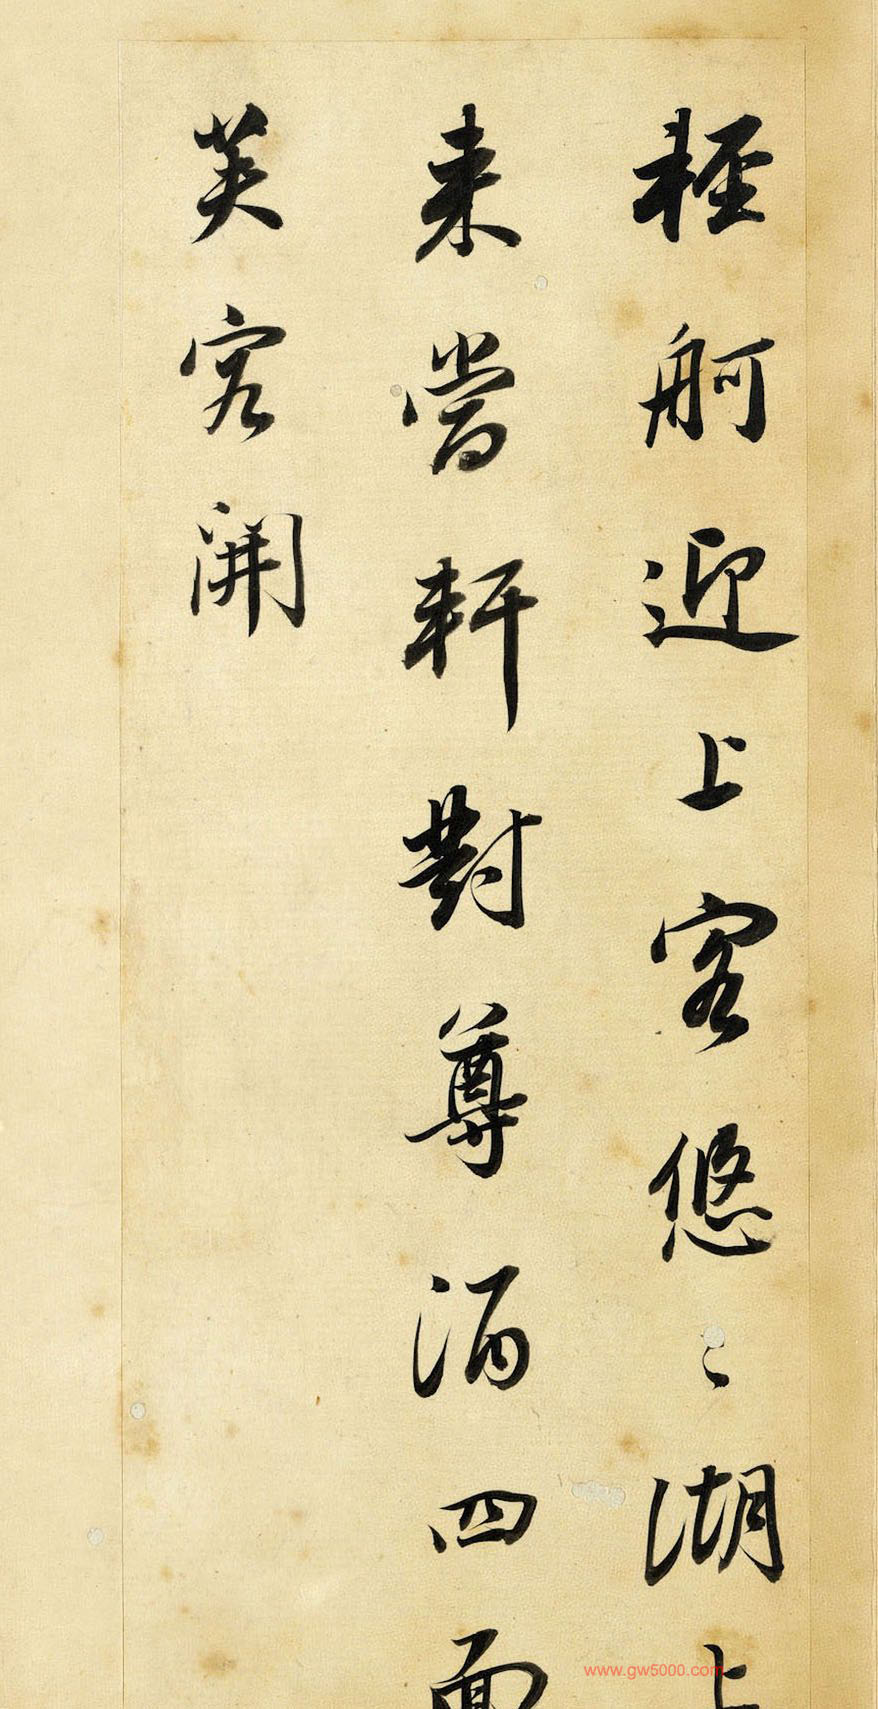 輕舸迎上客悠〻湖上
来當軒對尊酒四面
芙容開
www.gw5000.com